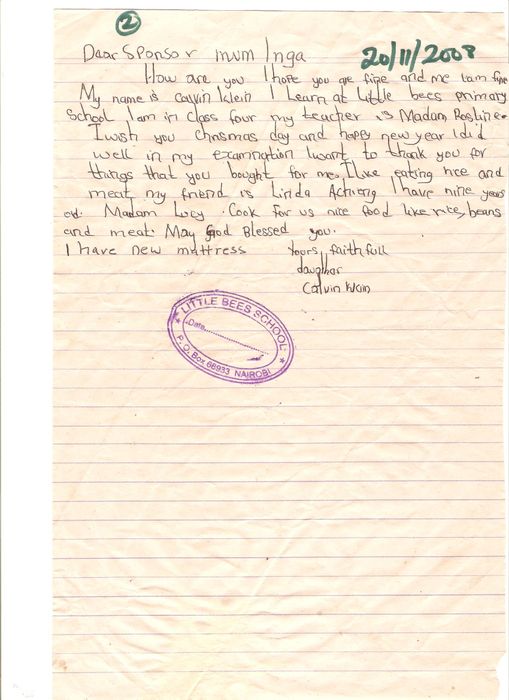 2
Dear Sponsor mum Inga 20/11/2008
How are you I hope you are fine and me I am fine
My name is Calvin Klein I Learn at Little bees primary
School I am in class four my teacher is Madam Rosline.
I wish you Chrismas day and happy new year I did
well in my examination I want to thank you for
things that you bought for me. I like eating rice and
meat my friend is Linda Achieng I have nine years
old. Madam Lucy .Cook for us nice food like rice, beans
and meat. May God Blessed you.
I have new mattress Yours faithfull
daugther
Calvin Klain
LITTLE BEES SCHOOL
Date
P. O. Box 66933 NAIROBI